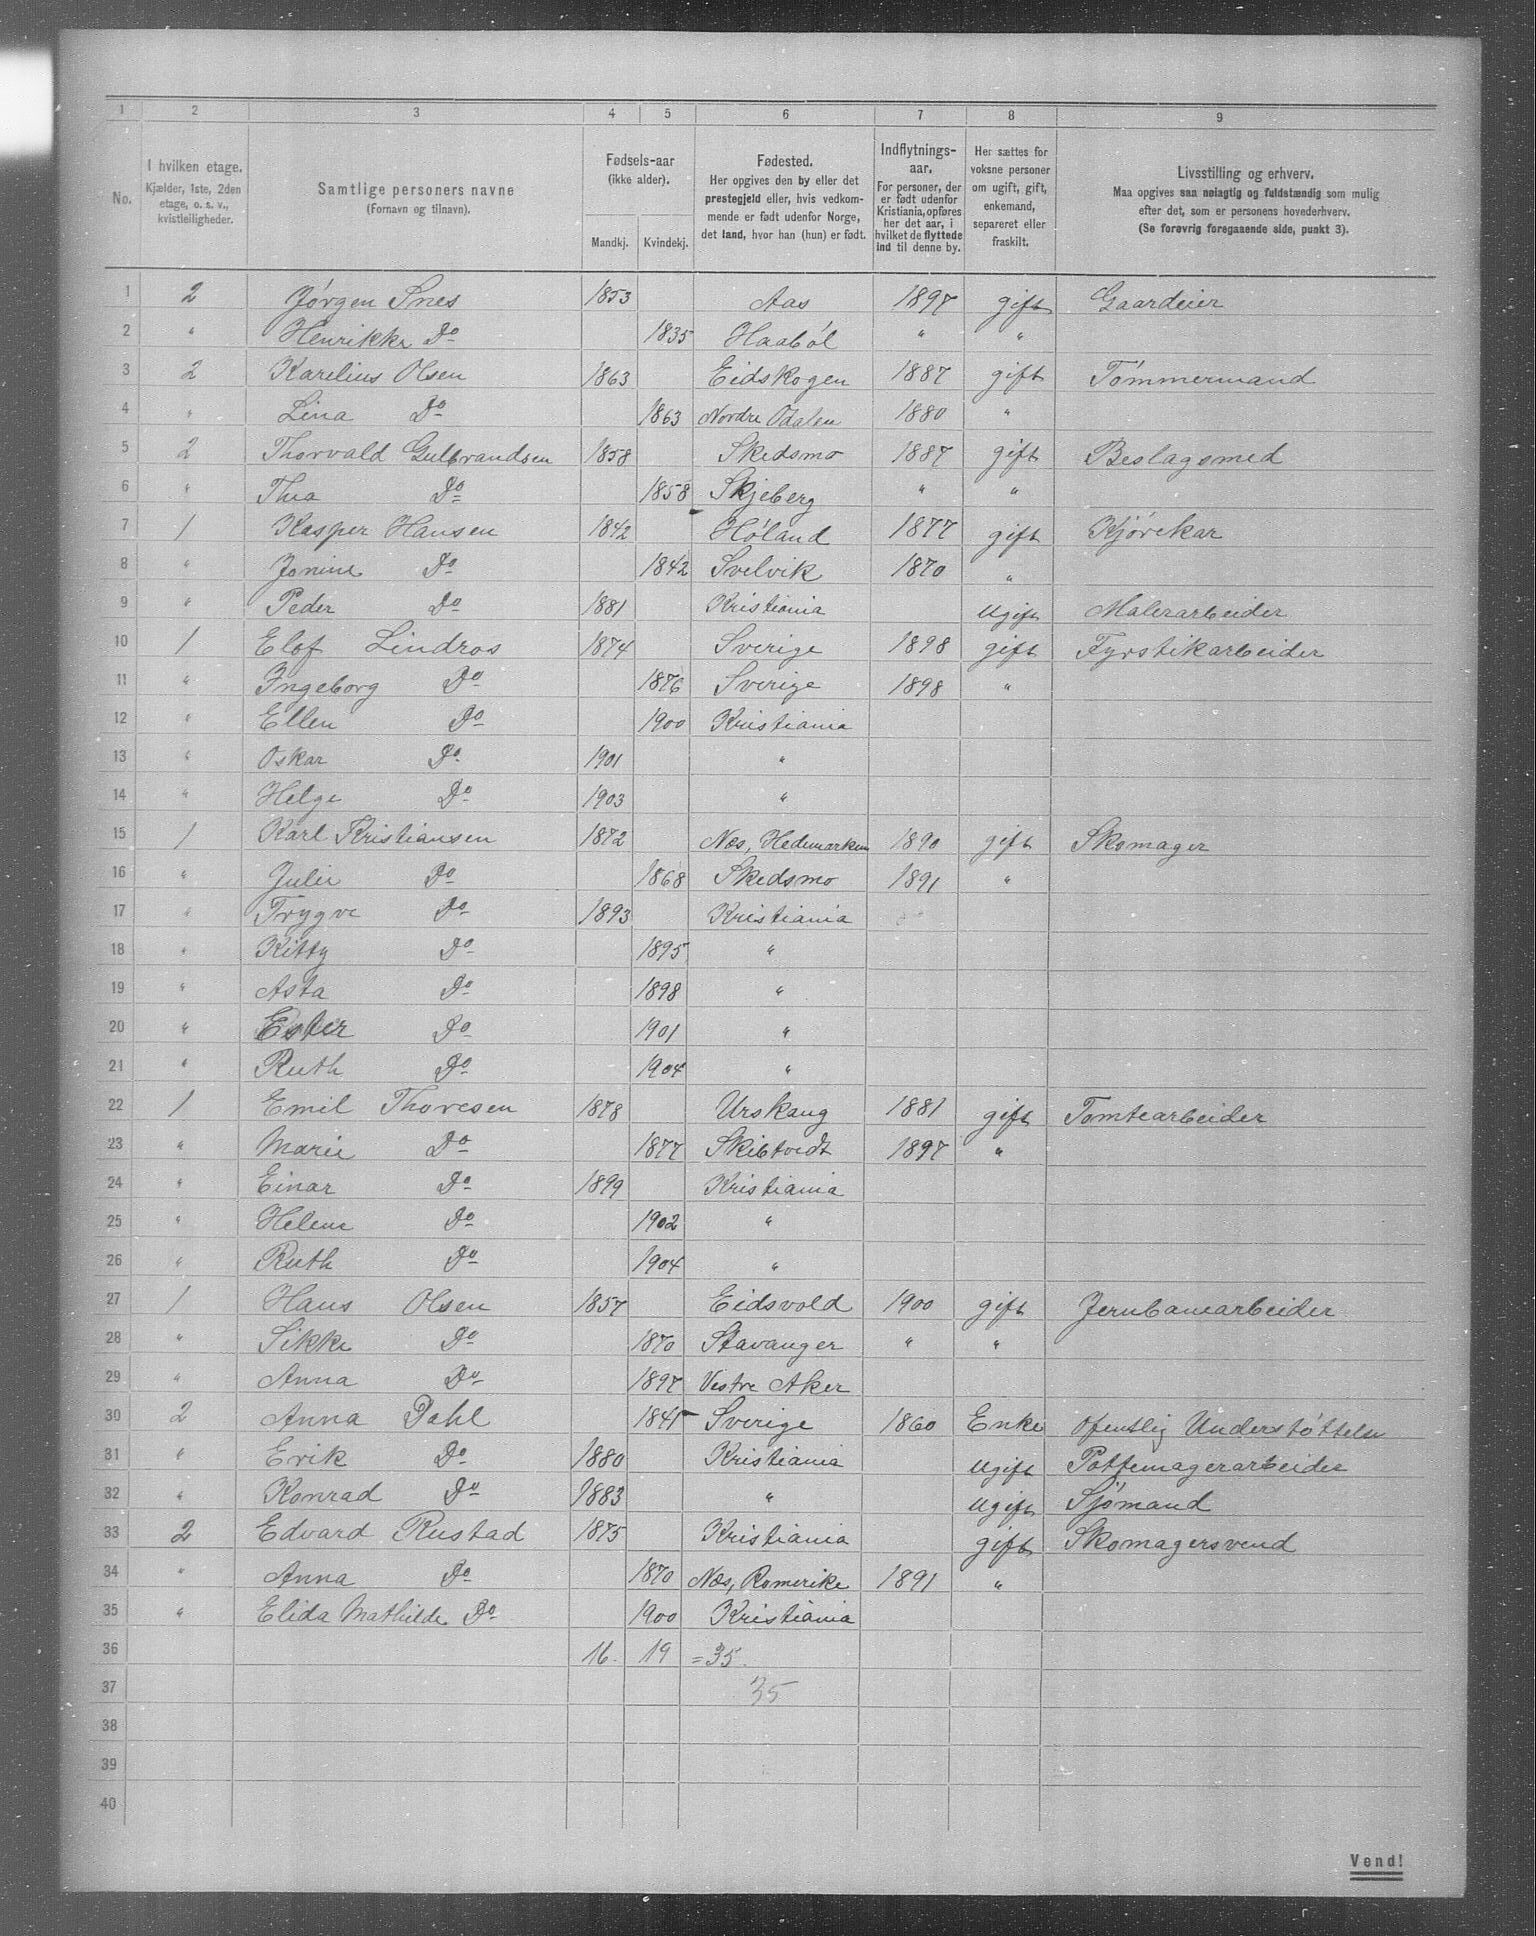 1 2 3 4 5 6 7 8 9
No.
I hvilken etage. Kjælder, 1ste, 2den etage, o. s. v., kvistleiligheder.
Samtlige personers navne (Fornavn og tilnavn).
Fødsels-aar (ikke alder). Mandkj. Kvindekj.
Fødested. Her opgives den by eller det prestegjeld eller, hvis vedkommende er født udenfor Norge, det land, hvor han (hun) er født.
Indflytnings-aar. For personer, der er født udenfor Kristiania, opføres her det aar, i hvilket de flyttede ind til denne by.
Her sættes for voksne personer om ugift, gift, enkemand, separeret eller fraskilt.
Livsstilling og erhverv. Maa opgives saa nøiagtig og fuldstændig som mulig efter det, som er personens hovederhverv. (Se forøvrig foregaaende side, punkt 3).
1 2 Jørgen Snes 1853 Aas 1897 gift Gaardeier
2 " Henrikke Do 1835 Haabøl " "
3 2 Karelius Olsen 1863 Eidskogen 1887 gift Tømmermand
4 " Lina Do 1863 Nordre Odalen 1880 "
5 2 Thorvald Gulbrandsen 1858 Skedsmo 1887 gift Beslagsmed
6 " Thea Do 1858 Skjeberg " "
7 1 Kasper Hansen 1842 Høland 1877 gift Kjørekar
8 " Jonine Do 1842 Svelvik 1870 "
9 " Peder Do 1881 Kristiania Ugift Malerarbeider
10 1 Elof Lindros 1874 Sverige 1898 gift Fyrstikarbeider
11 " Ingeborg Do 1876 Sverige 1898 "
12 " Ellen Do 1900 Kristiania
13 " Oskar Do 1901 "
14 " Helge Do 1903 "
15 1 Karl Kristiansen 1872 Næs, Hedemarken 1890 gift Skomager
16 " Julie Do 1868 Skedsmo 1891 "
17 " Trygve Do 1893 Kristiania
18 " Kitty Do 1895 "
19 " Asta Do 1898 "
20 " Ester Do 1901 "
21 " Ruth Do 1904 "
22 1 Emil Thoresen 1878 Urskaug 1881 gift Tomtearbeider
23 " Marie Do 1877 Skibtvedt 1897 "
24 " Einar Do 1899 Kristiania
25 " Helene Do 1902 "
26 " Ruth Do 1904 "
27 1 Hans Olsen 1857 Eidsvold 1900 gift Jernbanearbeider
28 " Sikke Do 1870 Stavanger " "
29 " Anna Do 1897 Vestre Aker
30 2 Anna Dahl 1841 Sverige 1860 Enke Ofentlig Understøttelse
31 " Erik Do 1880 Kristiania Ugift Pottemagerarbeider
32 " Konrad Do 1883 " Ugift Sjømand
33 2 Edvard Rustad 1875 Kristiania gift Skomagersvend
34 " Anna Do 1870 Næs, Romerike 1891 "
35 " Elida Mathilde Do 1900 Kristiania
36 16. 19 = 35.
37 35
38
39
40
Vend!